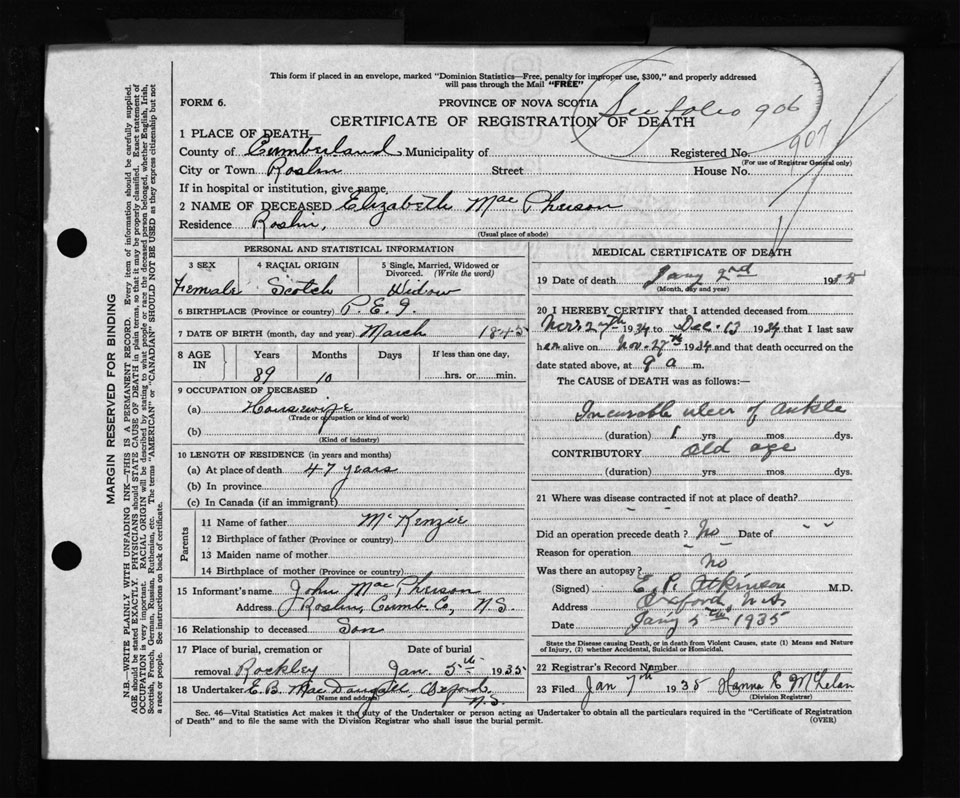 This form if placed in an envelope, marked "Dominion Statistics—Free, penalty for improper use, $300," and properly addressed
will pass through the Mail "FREE"
See folio 906
907
FORM 6. PROVINCE OF NOVA SCOTIA
CERTIFICATE OF REGISTRATION OF DEATH
1 PLACE OF DEATH—
County of Cumberland Municipality of Registered No.
(For use of Registrar General only)
City or Town Roslin Street House No.
If in hospital or institution, give name
2 NAME OF DECEASED Elizabeth Mac Pherson
Residence Roslin,
(Usual place of abode)
PERSONAL AND STATISTICAL INFORMATION
3 SEX 4 RACIAL ORIGIN 5 Single, Married, Widowed or Divorced. (Write the word)
Female Scotch Widow
6 BIRTHPLACE (Province or country) P.E.I.
7 DATE OF BIRTH (month, day and year) March 1845
8 AGE IN Years Months Days If less than one day,
89 10 hrs. or min.
9 OCCUPATION OF DECEASED
(a) Housewife
(Trade or occupation or kind of work)
(b)
(Kind of industry)
10 LENGTH OF RESIDENCE (in years and months)
(a) At place of death 47 years
(b) In province
(c) In Canada (if an immigrant)
Parents
11 Name of father McKenzie
12 Birthplace of father (Province or country)
13 Maiden name of mother
14 Birthplace of mother (Province or country)
15 Informant's name John Mac Pherson
Address Roslin, Cumb. Co, N.S
16 Relationship to deceased Son
17 Place of burial, cremation or removal Rockley Date of burial Jan. 5th 1935
18 Undertaker E.B. MacDougall, Oxford, N.S.
(Name and address)
MEDICAL CERTIFICATE OF DEATH
19 Date of death Jany 2nd 1935
(Month, day and year)
20 I HEREBY CERTIFY that I attended deceased from
Nov. 27th 1934 to Dec. 13 1934 that I last saw
her alive on Nov. 27th 1934 and that death occurred on the
date stated above, at 9 a m.
The CAUSE OF DEATH was as follows:—
Incurable ulcer of Ankle
(duration) 1 yrs mos dys.
CONTRIBUTORY Old age
(duration) yrs mos dys.
21 Where was disease contracted if not at place of death?
Did an operation precede death? No Date of
Reason for operation
Was there an autopsy? No
(Signed) E. P. Atkinson M.D.
Address Oxford, N.S.
Date Jany 5th 1935
State the Disease causing Death, or in death from Violent Causes, state (1) Means and Nature
of Injury, (2) whether Accidental, Suicidal or Homicidal.
22 Registrar's Record Number
23 Filed Jan 7th 1935 Hanna E McLelan
(Division Registrar)
Sec. 46—Vital Statistics Act makes it the duty of the Undertaker or person acting as Undertaker to obtain all the particulars required in the "Certificate of Registration
of Death" and to file the same with the Division Registrar who shall issue the burial permit. (OVER)
MARGIN RESERVED FOR BINDING
N.B.—WRITE PLAINLY WITH UNFADING INK—THIS IS A PERMANENT RECORD. Every item of information should be carefully supplied.
AGE should be stated EXACTLY. PHYSICIANS should STATE CAUSE OF DEATH in plain terms, so that it may be properly classified. Exact statement of
OCCUPATION is very important. RACIAL ORIGIN will be described by stating to what people or race the deceased person belonged, whether English, Irish,
Scottish, French, German, Russian, Ruthenian, etc. The terms "AMERICAN" or "CANADIAN" SHOULD NOT BE USED as they express citizenship but not
a race or people. See instructions on back of certificate.